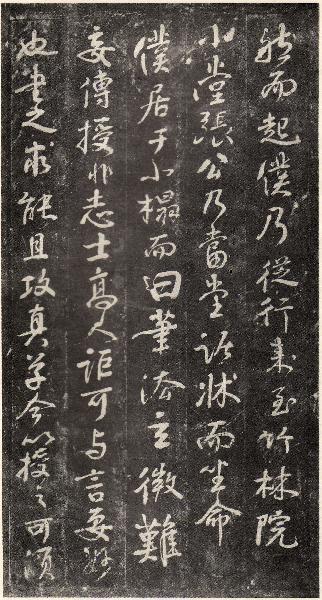 然而起僕乃從行来至竹林院
小堂張公乃當堂踞牀而坐命
僕居乎小榻而曰筆法玄微難
妄傳授非志士高人詎可与言要妙
也書之求能且攻真草今以授之可須